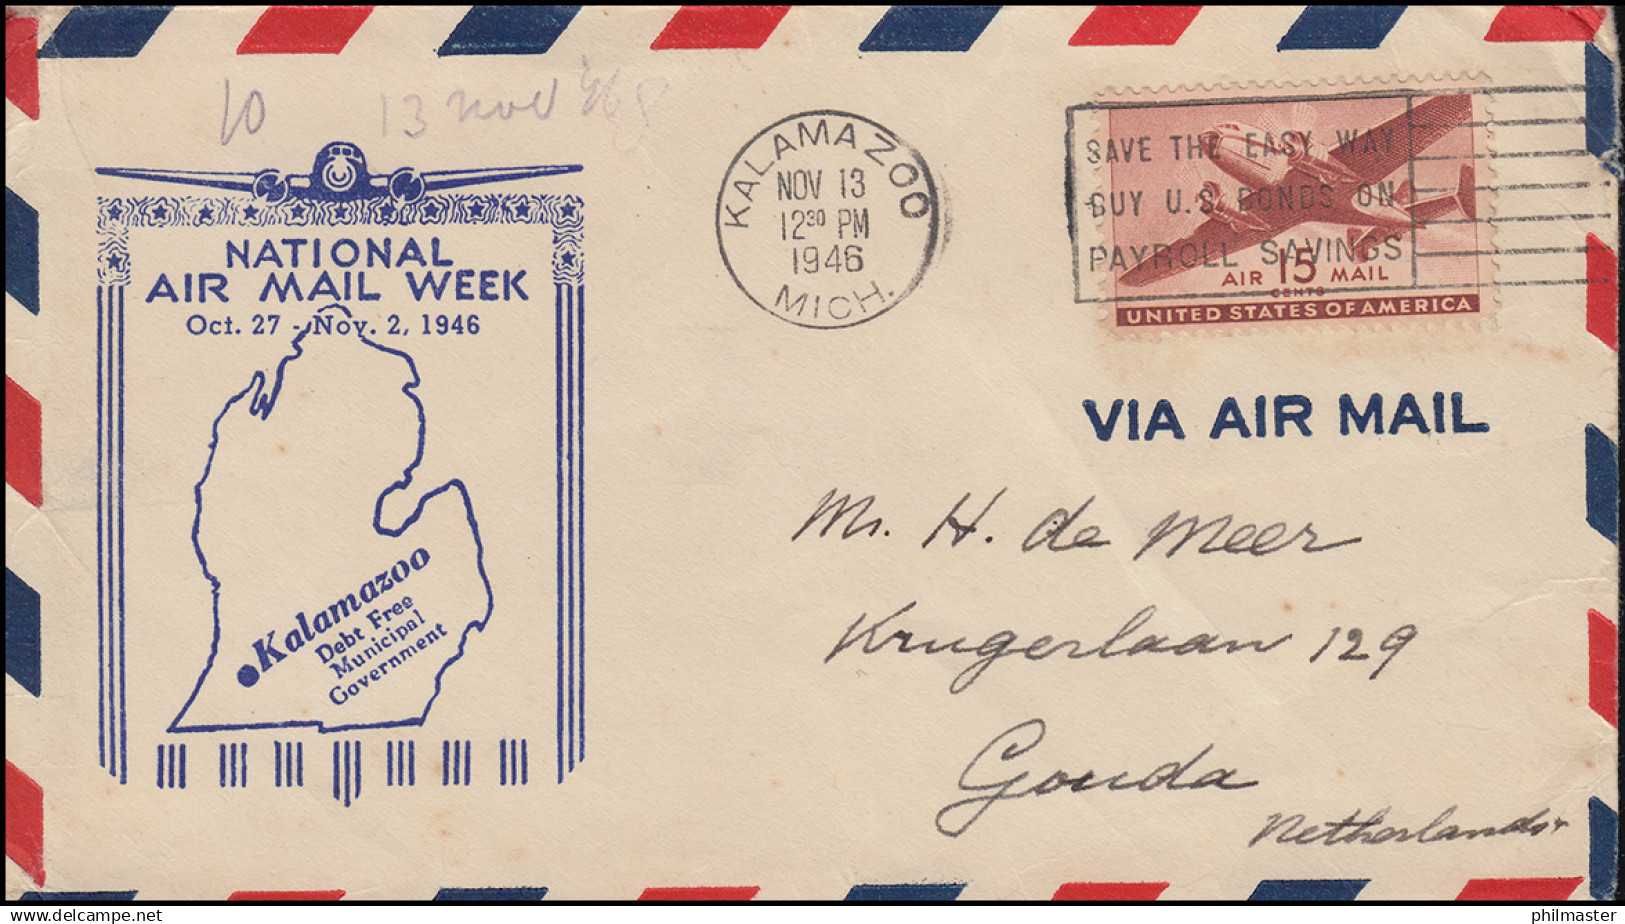 10 13 nov '46
NATIONAL
AIR MAIL WEEK
Oct. 27 - Nov. 2, 1946
Kalamazoo
Debt Free
Municipal
Government
KALAMAZOO
NOV 13
12 30 PM
1946
MICH.
SAVE THE EASY WAY
BUY U.S. BONDS ON
PAYROLL SAVINGS
AIR 15 MAIL
CENTS
UNITED STATES OF AMERICA
VIA AIR MAIL
Mr. H. de Meer
Krugerlaan 129
Gouda
Netherlands
philmaster